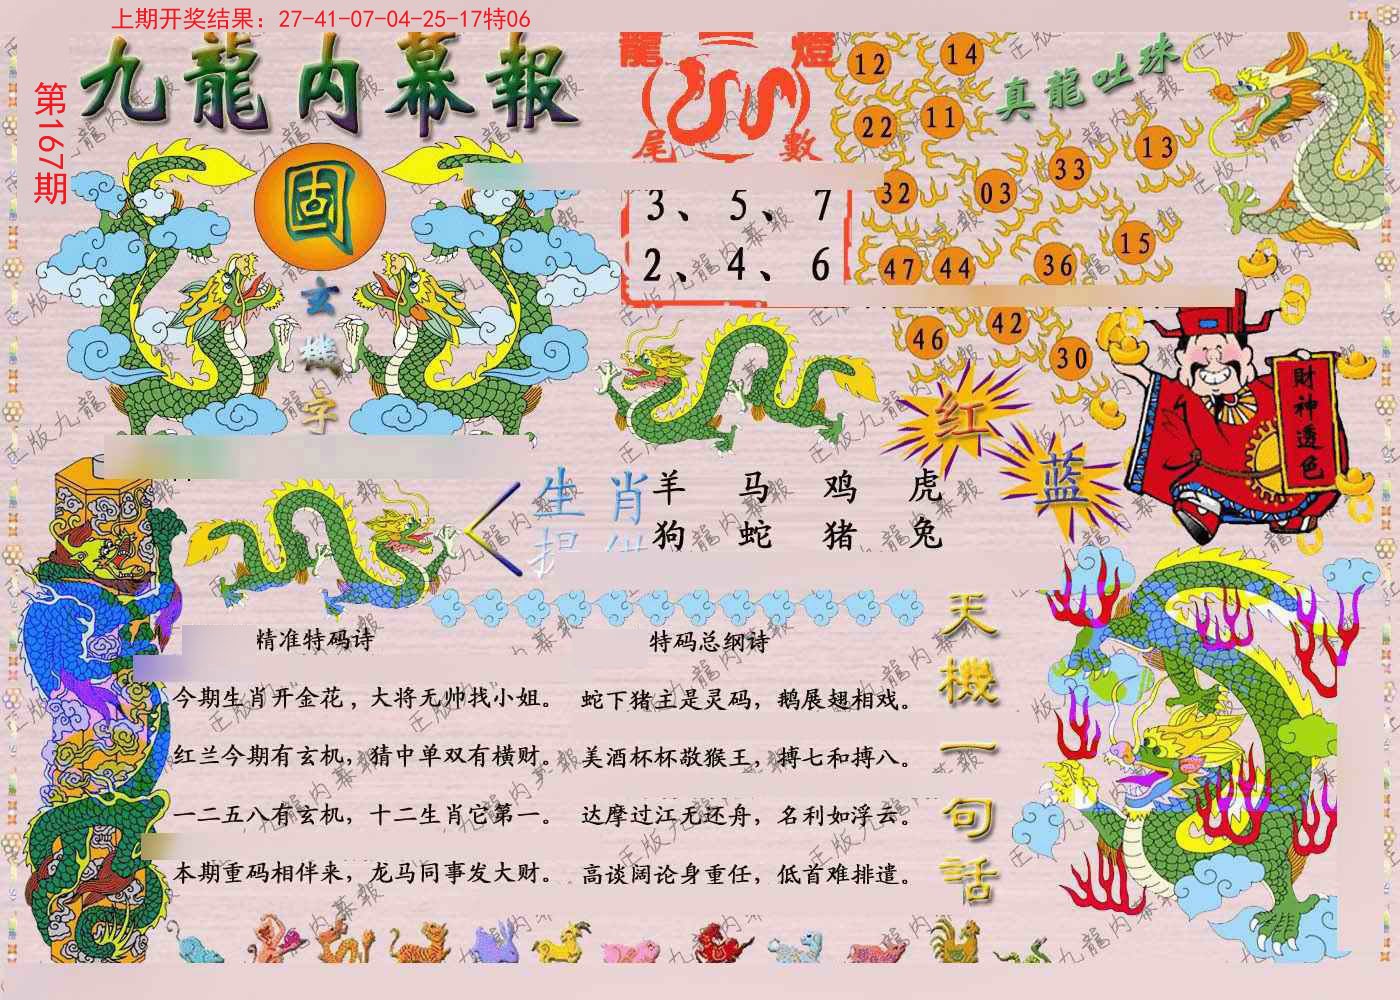 上期开奖结果：27-41-07-04-25-17特06
第167期
九龍内幕報
固
玄機字
龍 燈
尾 數
3、5、7
2、4、6
真龍吐珠
12 14
22 11
33 13
32 03
15
47 44 36
46 42
30
財神透色
红
蓝
生肖
提供
羊 马 鸡 虎
狗 蛇 猪 兔
精准特码诗
今期生肖开金花，大将无帅找小姐。
红兰今期有玄机，猜中单双有横财。
一二五八有玄机，十二生肖它第一。
本期重码相伴来，龙马同事发大财。
特码总纲诗
蛇下猪主是灵码，鹅展翅相戏。
美酒杯杯敬猴王，搏七和搏八。
达摩过江无还舟，名利如浮云。
高谈阔论身重任，低首难排遣。
天機一句話
正版九龍内幕報